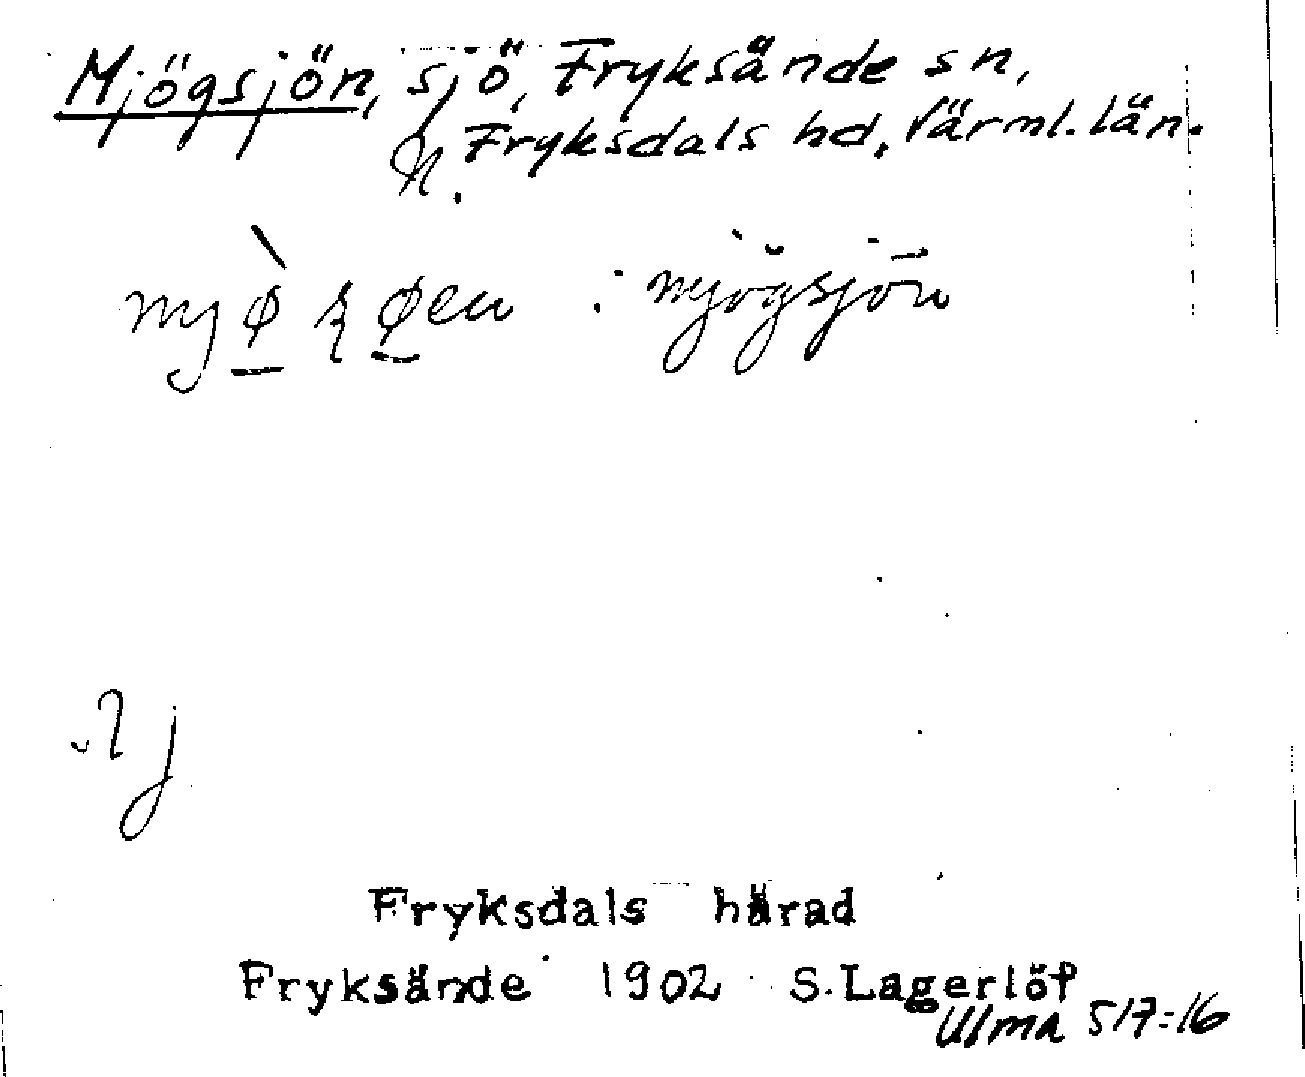 Mjögsjön, sjö, Fryksände sn,
N. Fryksdals hd. Värml. län.
mjögsjön
Fryksdals härad
Fryksände 1902 S. Lagerlöf
Ulma 517:16